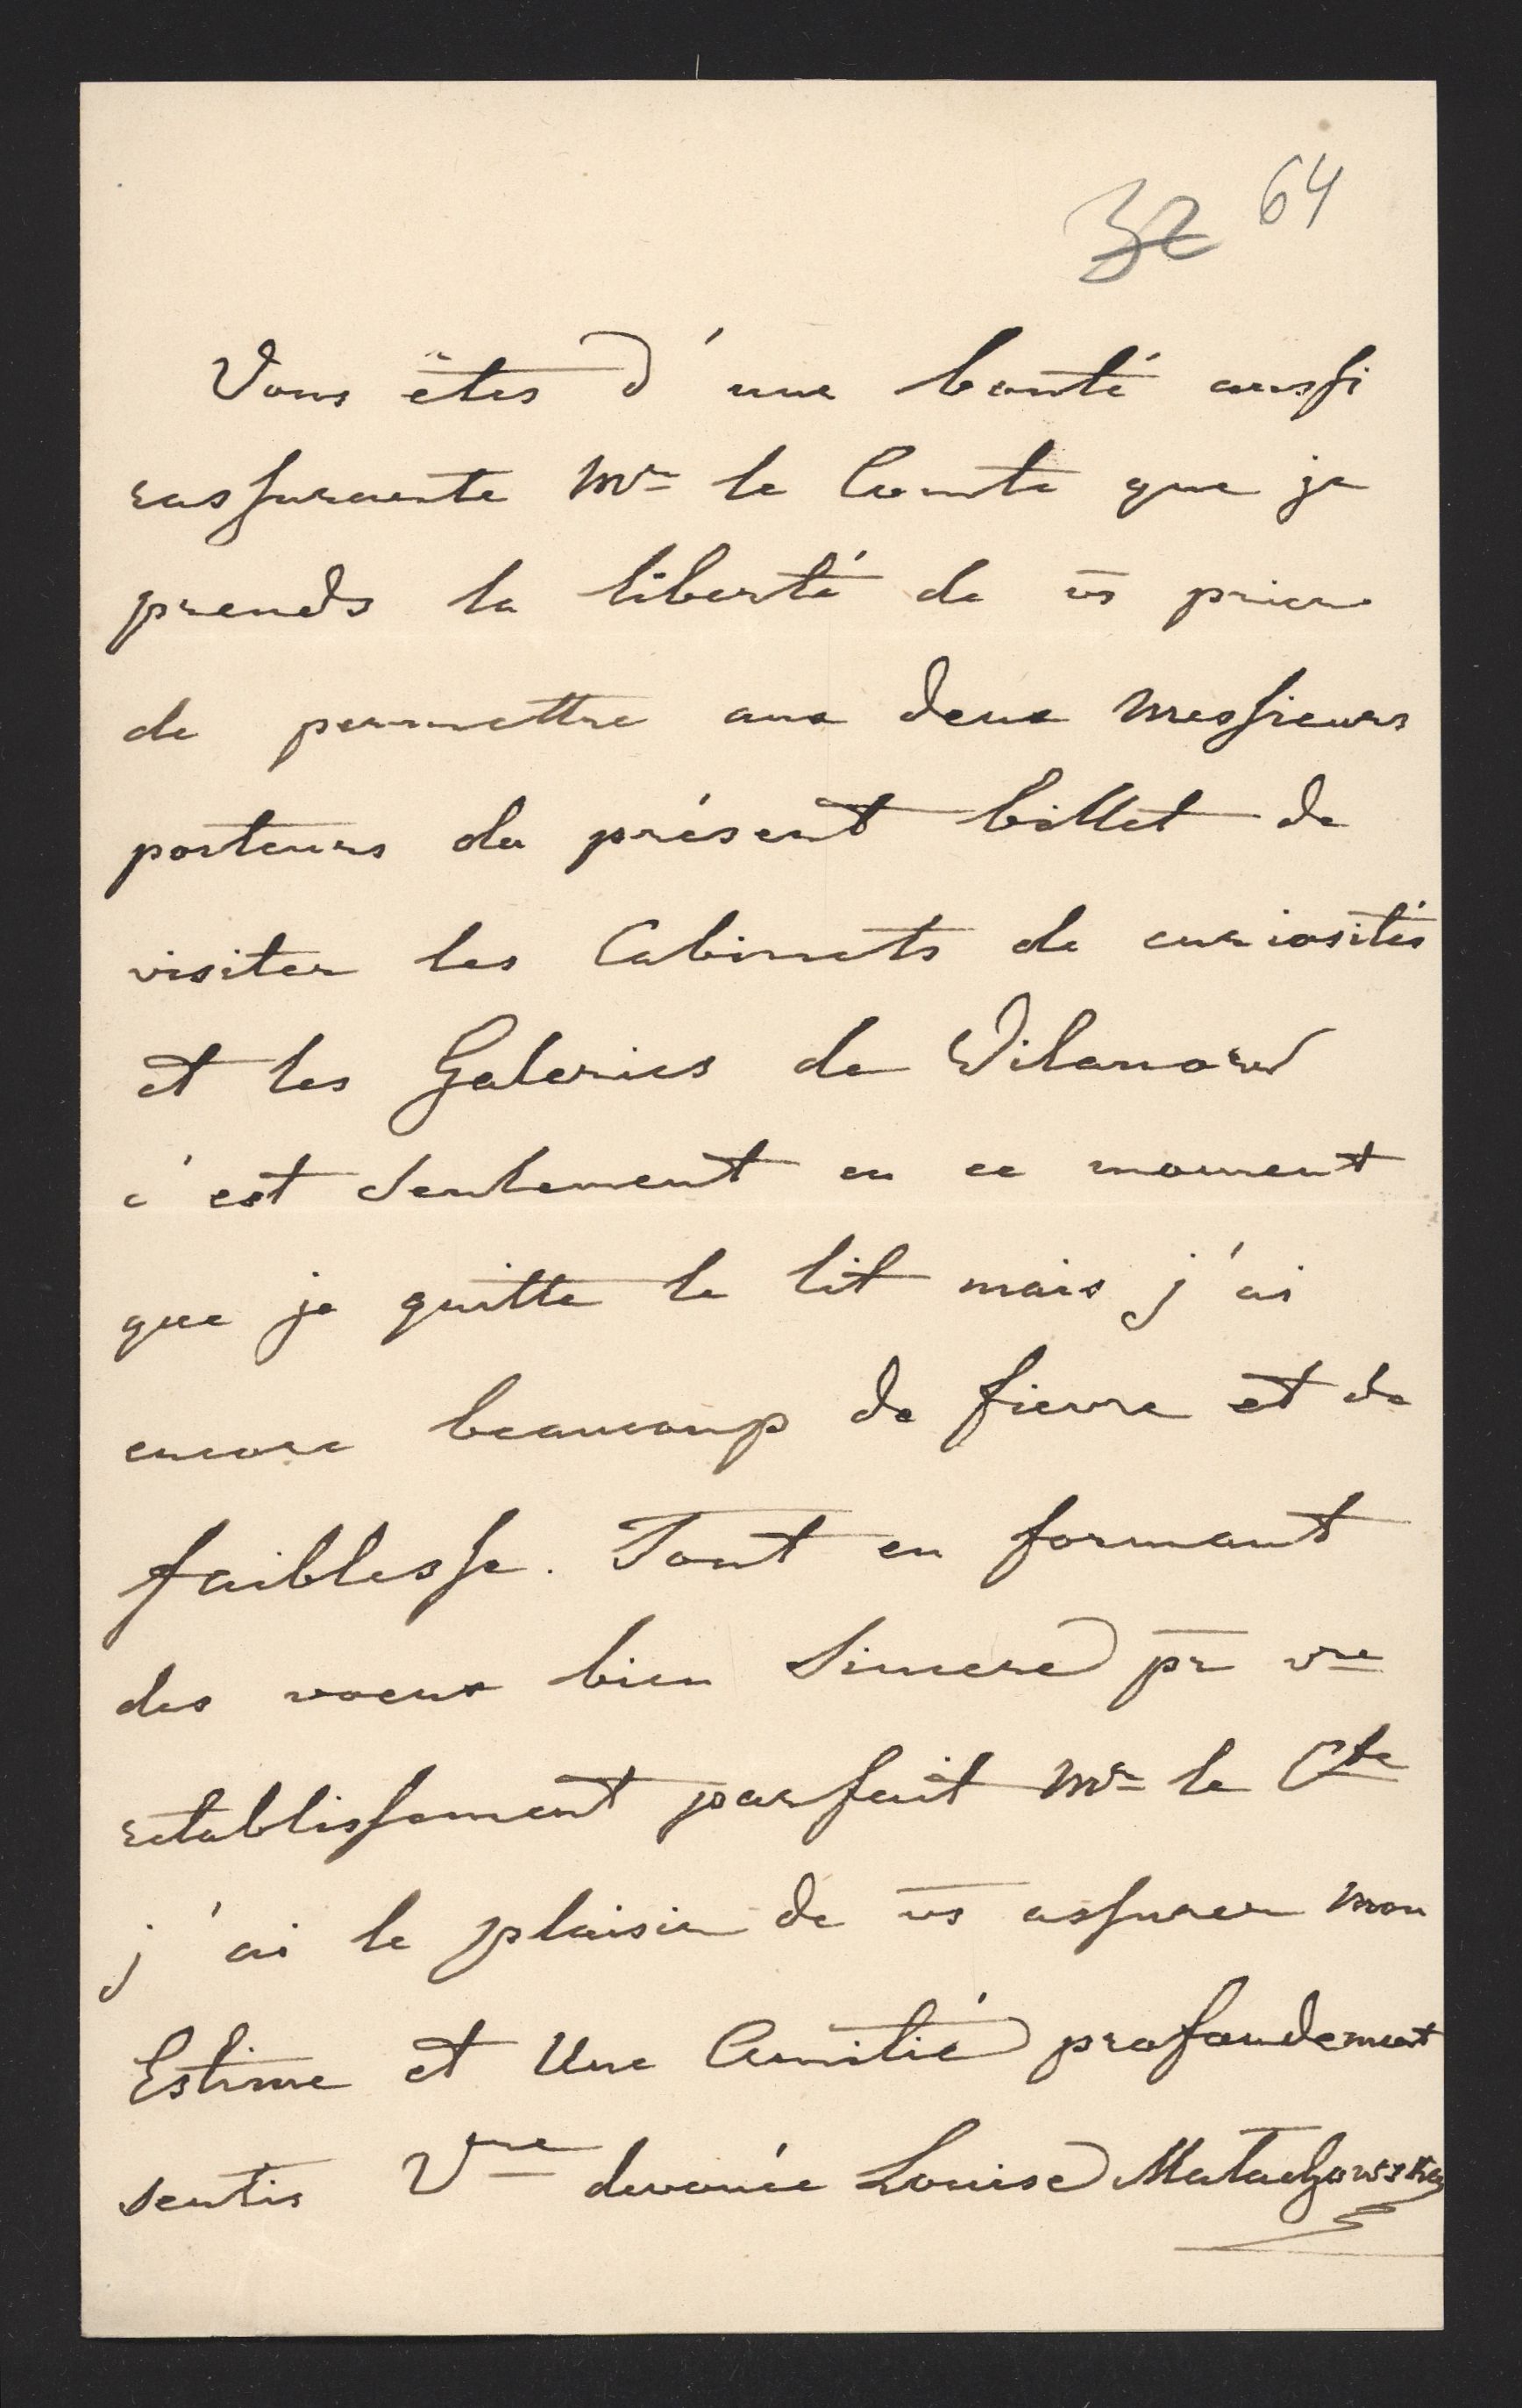 32 64
Vous êtes d'une bonté aussi
rassurante Mr le Comte que je
prends la liberté de vs prier
de permettre aux deux Messieurs
porteurs du présent billet de
visiter les Cabinets de curiosités
et les Galeries de Wilanow
c'est seulement en ce moment
que je quitte le lit mais j'ai
encore beaucoup de fievre et de
faiblesse. Tout en formant
des voeux bien Sincere pr vre
retablissement parfait Mr le Cte
j'ai le plaisir de vs assurer mon
Estime et Une Amitié profondement
sentis Vre devouée Louise